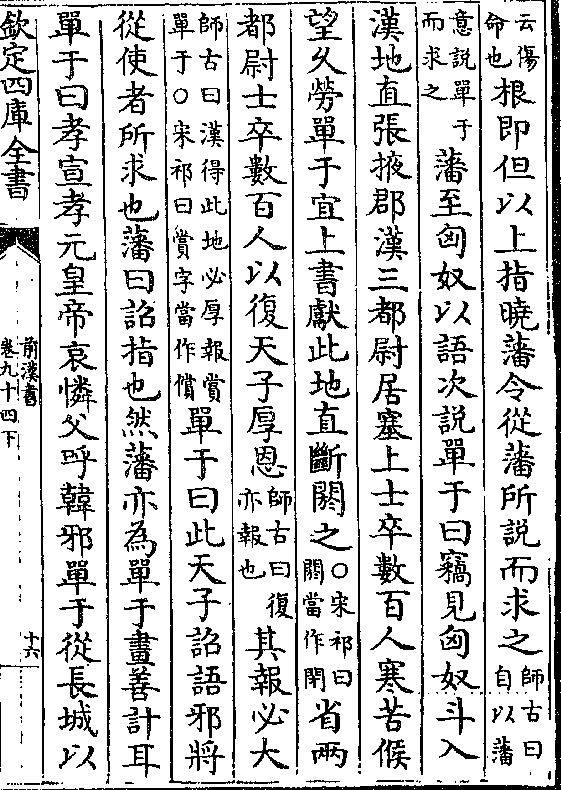 云傷命也根即但以上指曉藩令從藩所說而求之師古曰自以藩
意說單于而求之藩至匈奴以語次說單于曰竊見匈奴斗入
漢地直張掖郡漢三都尉居塞上士卒數百人寒苦候
望久勞單于宜上書獻此地直斷閼之○宋祁曰閼當作閉省兩
都尉士卒數百人以復天子厚恩師古曰復亦報也其報必大
師古曰漢得此地必厚報賞單于○宋祁曰賞字當作償單于曰此天子詔語邪將
從使者所求也藩曰詔指也然藩亦為單于畫善計耳
單于曰孝宣孝元皇帝哀憐父呼韓邪單于從長城以
欽定四庫全書
前漢書
卷九十四下
十六